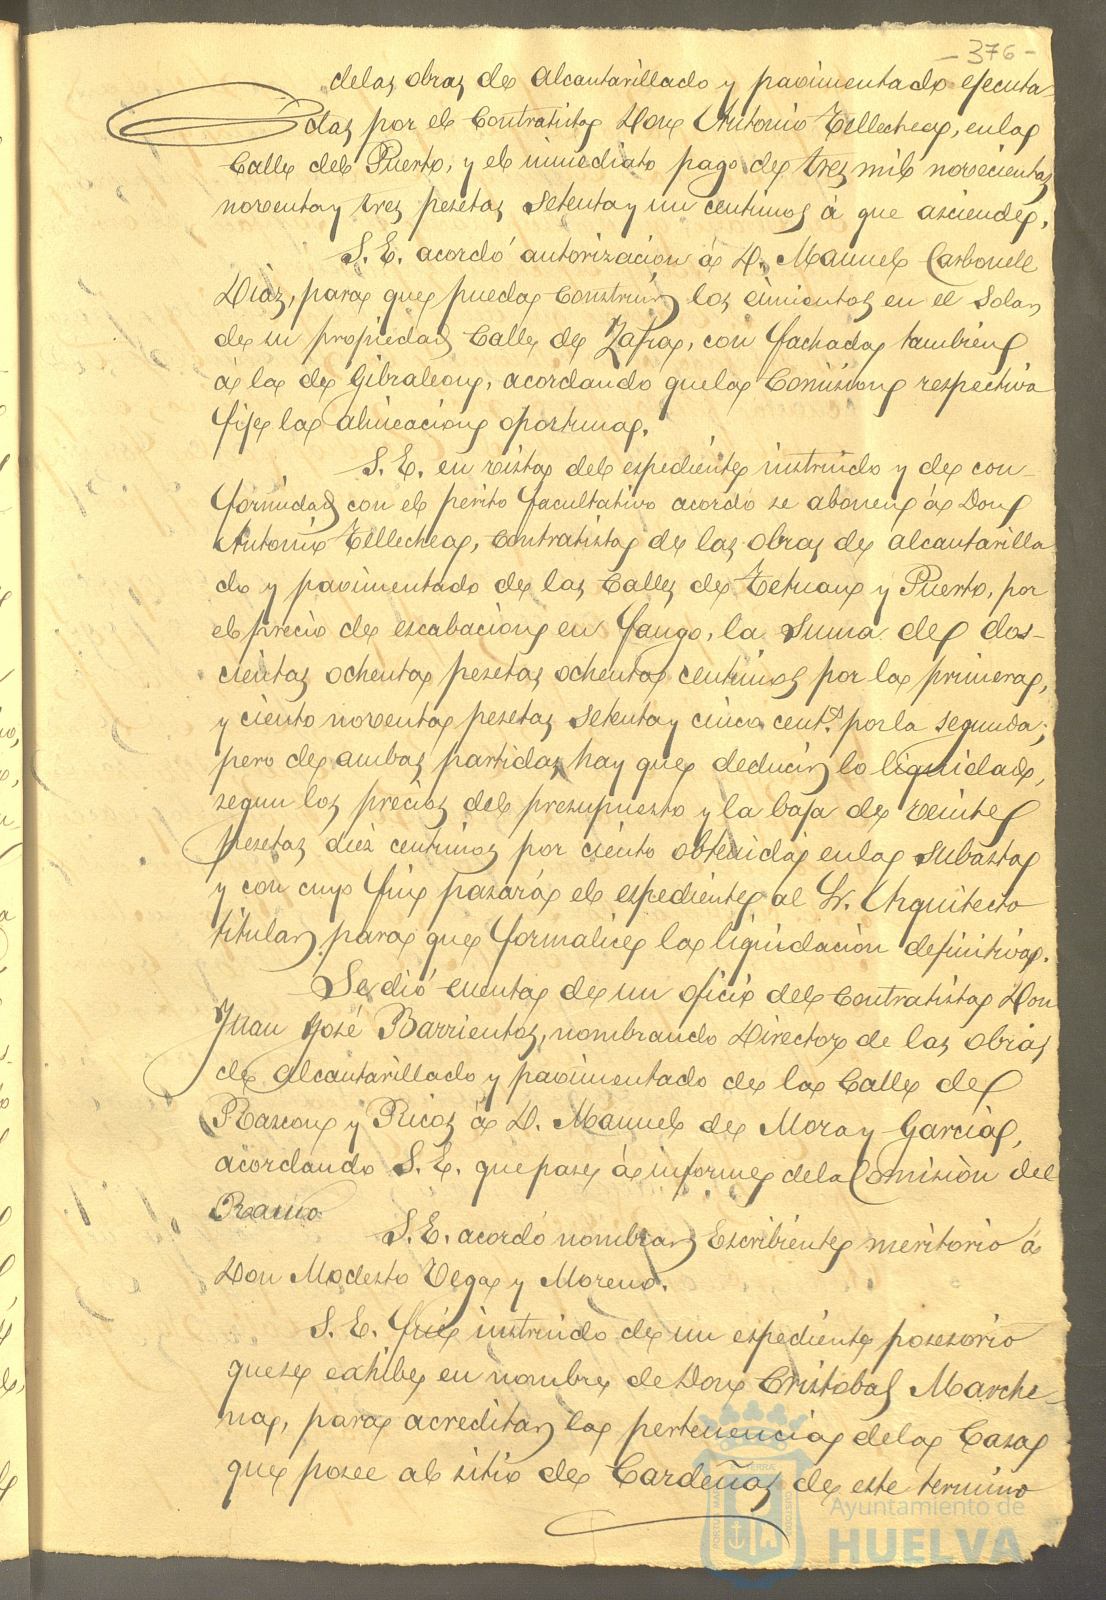 - 376 -
de las obras de alcantarillado y pavimentado ejecuta-
das por el Contratista Don Antonio Tellechea, en la
Calle del Puerto, y el inmediato pago de tres mil novecientas
noventa y tres pesetas setenta y un centimos á que asciende.
S. E. acordó autorización á D. Manuel Carbonell
Diaz, para que pueda construir los cimientos en el solar
de su propiedad Calle de Zafra, con fachada tambien
á la de Gibraleon, acordando que la Comision respectiva
fije la alineacion oportuna.
S. E. en vista del espediente instruido y de con-
formidad con el perito facultativo acordó se abonen á Don
Antonio Tellechea, Contratista de las obras de alcantarilla
do y pavimentado de las Calles de Tetuan y Puerto, por
el precio de escabacion en fango, la suma de dos-
cientas ochenta pesetas ochenta centimos por la primera,
y ciento noventa pesetas setenta y cinco cents. por la segunda;
pero de ambas partidas hay que deducir lo liquidado,
segun los precios del presupuesto y la baja de veinte
pesetas diez centimos por ciento obtenida en la subasta
y con cuyo fin pasará el espediente al Sr. Arquitecto
titular para que formalice la liquidación definitiva.
Se dió cuenta de un oficio del Contratista Don
Juan José Barrientos, nombrando Director de las obras
de alcantarillado y pavimentado de la Calle de
Rascon y Ricos á D. Manuel de Mora y Garcia,
acordando S. E. que pase á informe de la Comisión del
Ramo
S. E. acordó nombrar Escribiente meritorio á
Don Modesto Vega y Moreno.
S. E. fué instruido de un espediente posesorio
que se exhibe en nombre de Don Cristobal Marche-
na, para acreditar la pertenencia de la Casa
que posee al sitio de Cardeñas de este termino
Ayuntamiento de
HUELVA